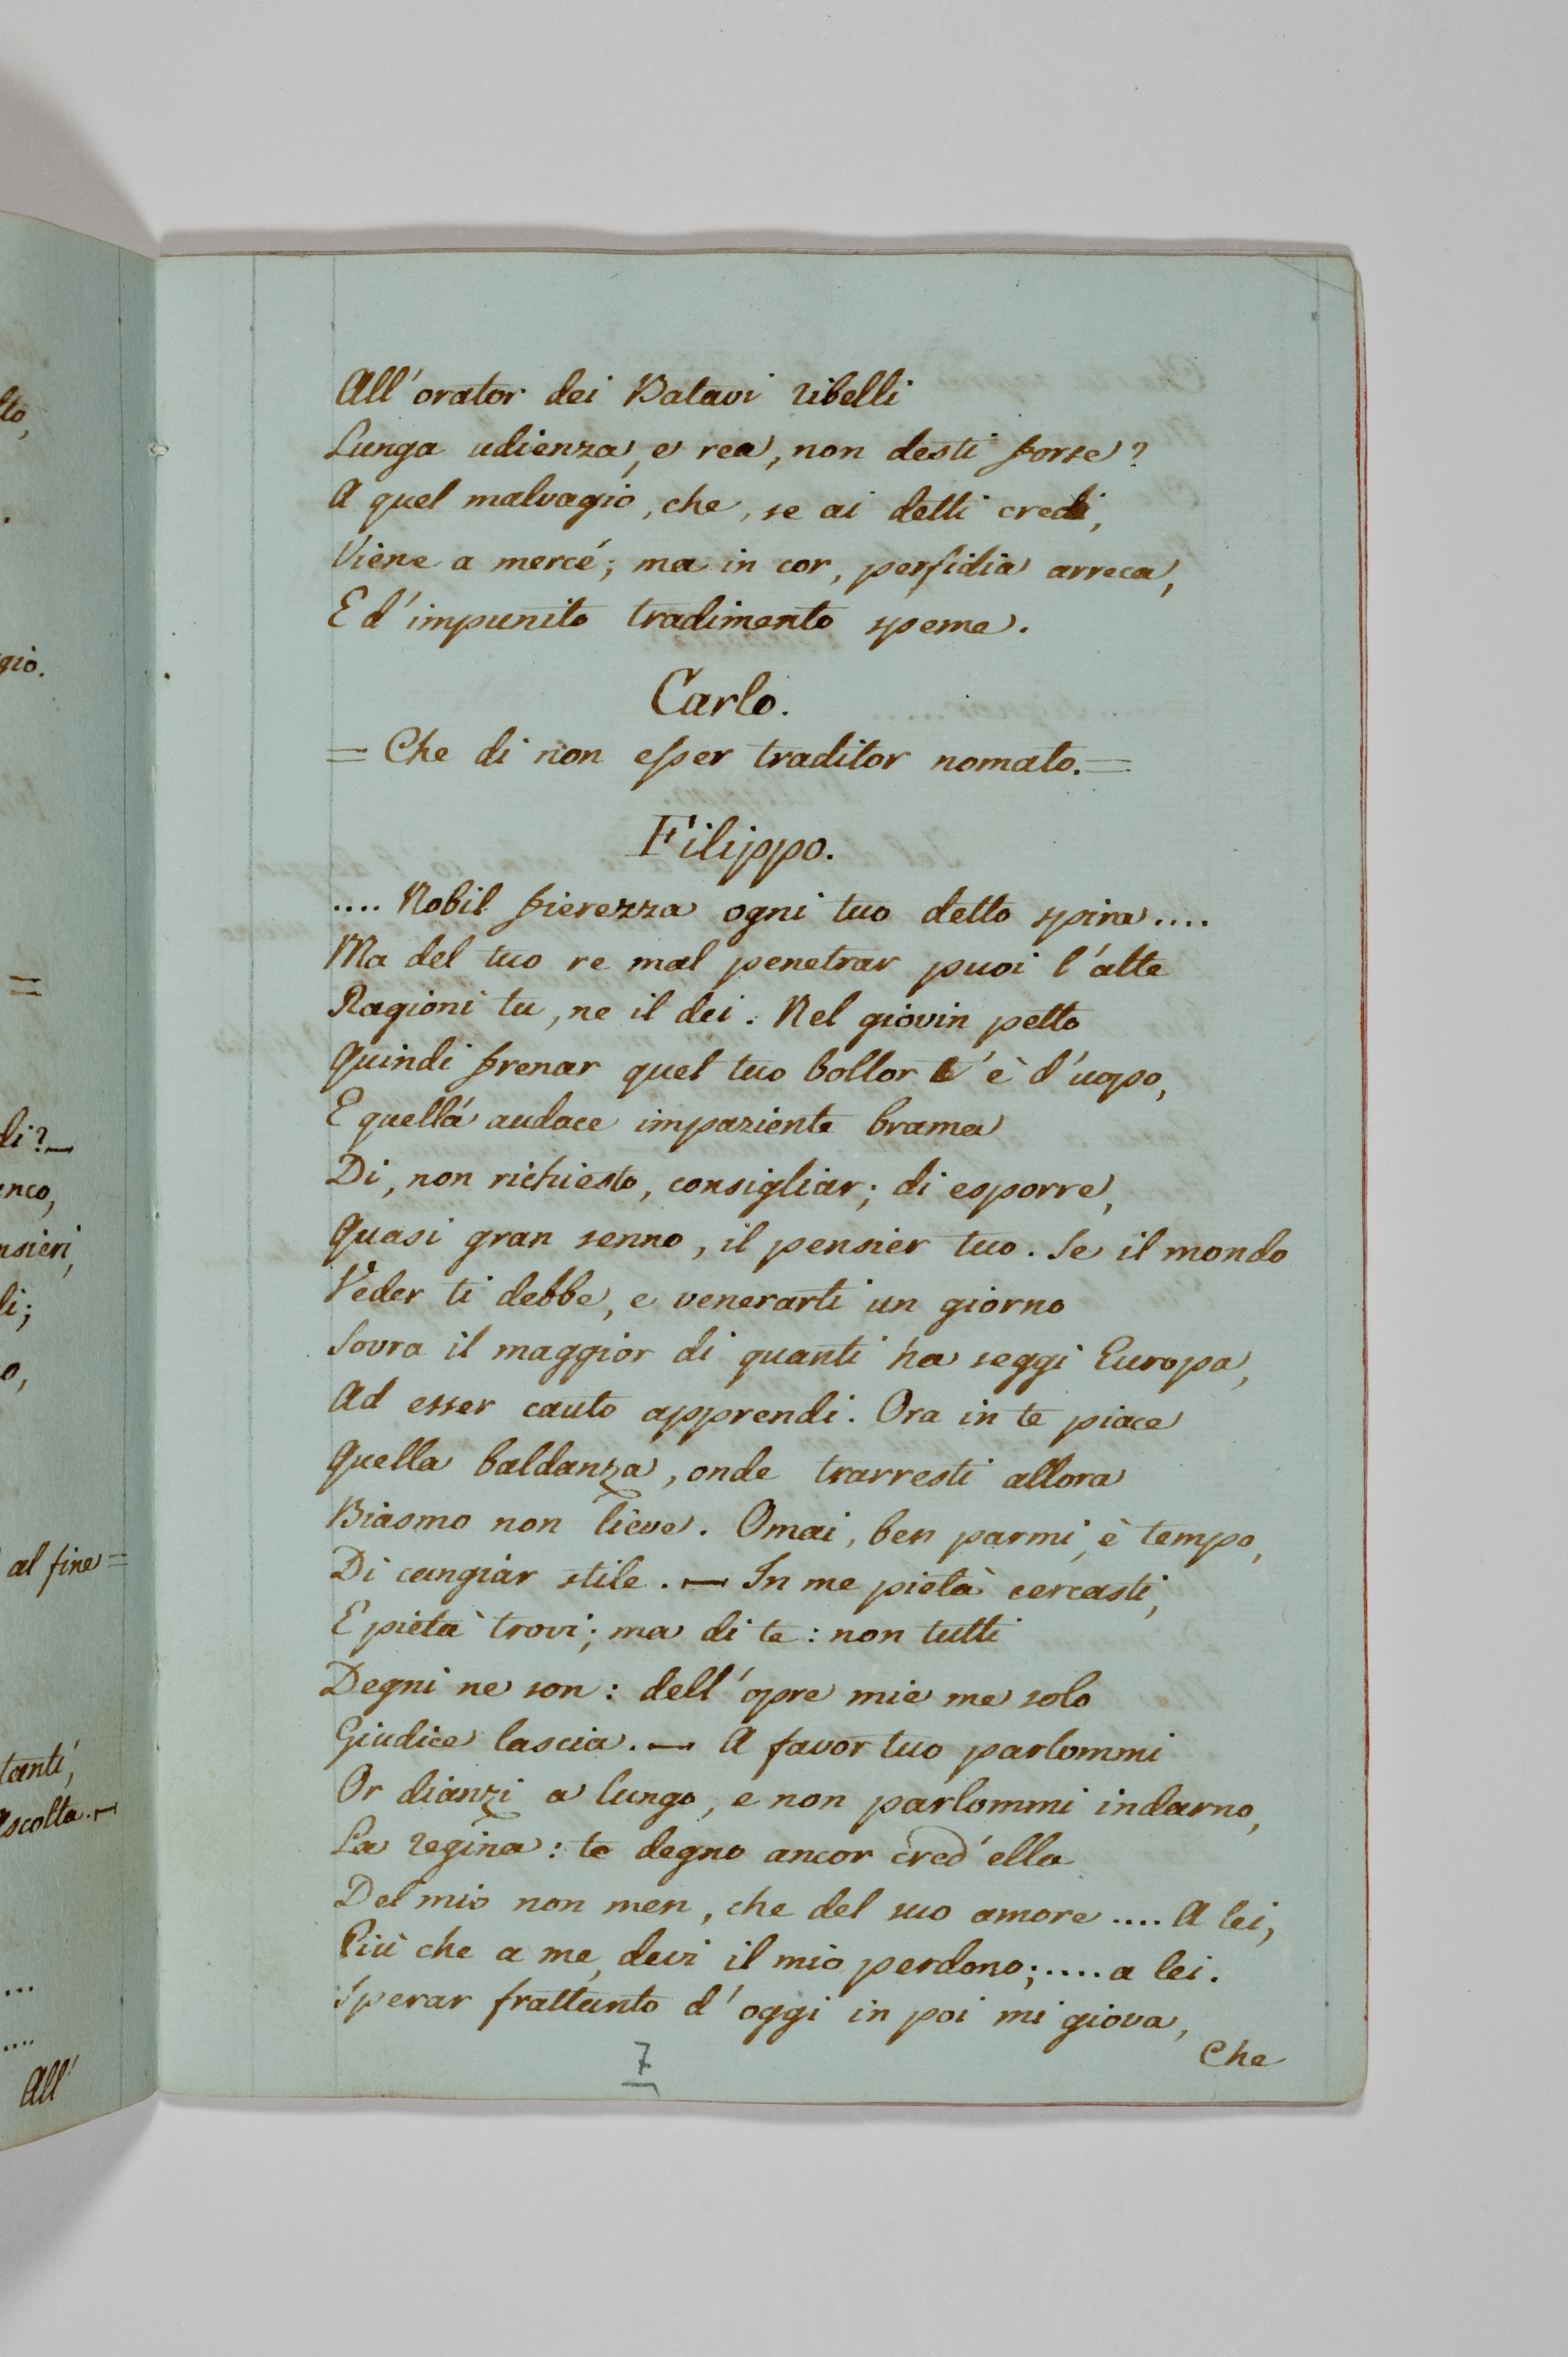 lto,
.
gio.
=
di?—
anco,
nsieri,
li;
o,
al fine=
tanti,
ascolta.—
...
....
All'
All'orator dei Batavi ribelli
Lunga udienza, e rea, non desti forse?
A quel malvagio, che, se ai detti credi,
Viene a mercé; ma in cor, perfidia arreca,
E d'impunito tradimento speme.
Carlo.
= Che di non esser traditor nomato.=
Filippo.
.... Nobil fierezza ogni tuo detto spira....
Ma del tuo re mal penetrar puoi l'alte
Ragioni tu, ne il dei. Nel giovin petto
Quindi frenar quel tuo bollor t'è d'uopo,
E quell'audace impaziente brama
Di, non richiesto, consigliar; di esporre,
Quasi gran senno, il pensier tuo. Se il mondo
Veder ti debbe, e venerarti un giorno
Sovra il maggior di quanti ha seggi Europa,
Ad esser cauto apprendi. Ora in te piace
Quella baldanza, onde trarresti allora
Biasmo non lieve. Omai, ben parmi, è tempo,
Di cangiar stile. — In me pietà cercasti,
E pietà trovi; ma di te: non tutti
Degni ne son: dell'opre mie me solo
Giudice lascia. — A favor tuo parlommi
Or dianzi a lungo, e non parlommi indarno,
La regina: te degno ancor cred'ella
Del mio non men, che del suo amore .... A lei,
Più che a me, devi il mio perdono;..... a lei.
Sperar frattanto d'oggi in poi mi giova,
Che
7